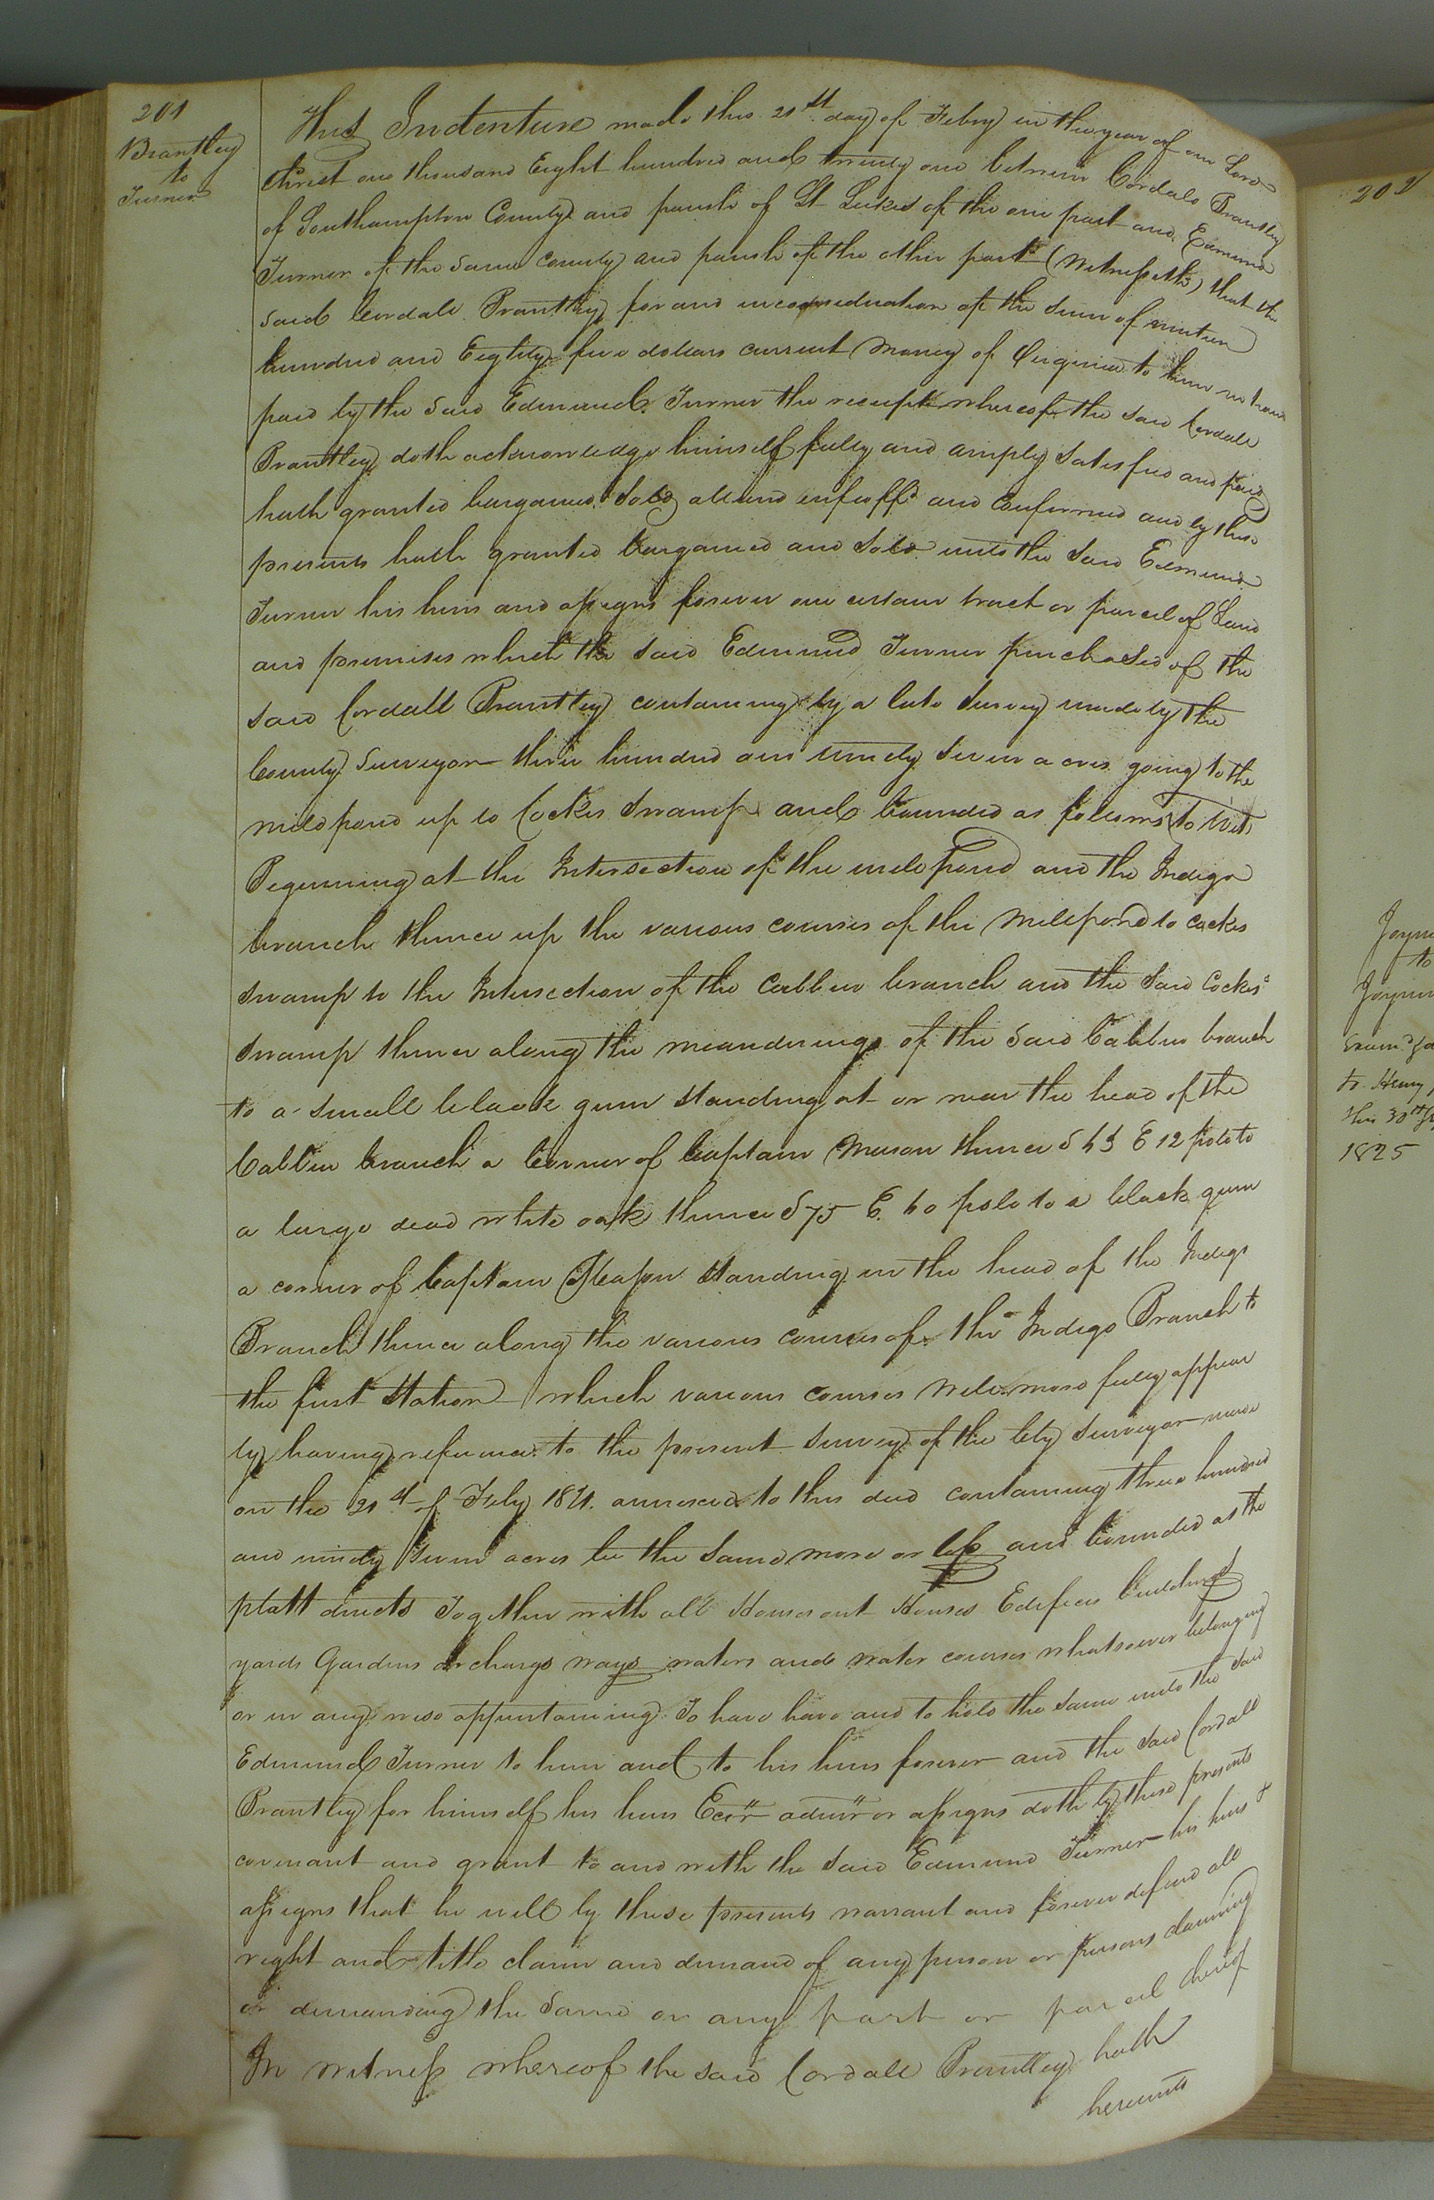 201
Brantley
to
Turner
This Indenture made this 21st day of Feby in the year of our Lord
Christ one thousand Eight hundred and twenty one between Cordale Brantley
of Southampton County and parish of St Lukes of the one part and Edmund
Turner of the same county and parish of the other part (Witnesseth) that the
said Cordale Brantley for and in consideration of the sum of nineteen
hundred and Eighty five dollars current money of Virginia to him in hand
paid by the said Edmund Turner the receipt whereof the said Cordale
Brantley doth acknowledge himself fully and amply satisfied and paid
hath granted bargained sold aliend infeoffd and Confirmed and by these
presents hath granted bargained and sold unto the said Edmund
Turner his heirs and assigns forever one certain tract or parcel of Land
and premises which the said Edmund Turner purchased of the
said Cordall Brantley containing by a late survey made by the
County Surveyor three hundred and ninety seven acres going to the
millpond up to Cockes Swamp and bounded as follows to Wit
Beginning at the Intersection of the millpond and the Indigo
branch thence up the various courses of the Millpond to cockes
swamp to the Intersection of the Cabbin branch and the said Cockes
swamp thence along the meanderings of the said Cabbin branch
to a small black gum standing at or near the head of the
Cabbin branch a Corner of Captain Mason thence S E 12 pole to
a large dead white oak thence S 75 E. 60 pole to a black gum
a corner of Captain Mason standing in the head of the Indigo
Branch thence along the various courses of the Indigo Branch to
the first Station which various courses will more fully appear
by having reference to the present survey of the Cty surveyor made
on the 21st of Feby 1821. annexed to this deed containing three hundred
and ninety seven acres be the same more or less and bounded as the
platt directs Together with all Houses out Houses Edifices buildings
yards Gardens orchards ways waters and water courses whatsoever belonging
or in any wise appurtaining To have have and to hold the same unto the said
Edmund Turner to him and to his heirs forever and the said Cordall
Brantley for himself his heirs Exrr admrr or assigns doth by these presents
covenant and grant to and with the said Edmund Turner his heirs &
assigns that he will by these presents warrant and forever defend all
right and title claim and demand of any person or persons claiming
or demanding the same or any part or parcel thereof
In witness whereof the said Cordall Brantley hath
hereunto
202
to
1825